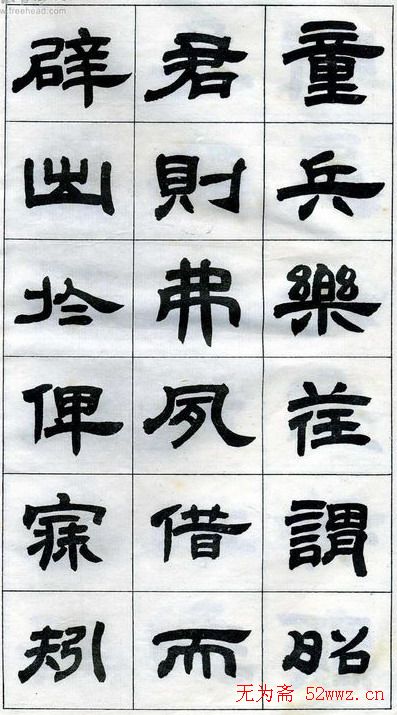 w.freehead.com
童兵樂謂昭
君則弗夙借而
辟出於俾寐矧
无为斋 52wwz.cn